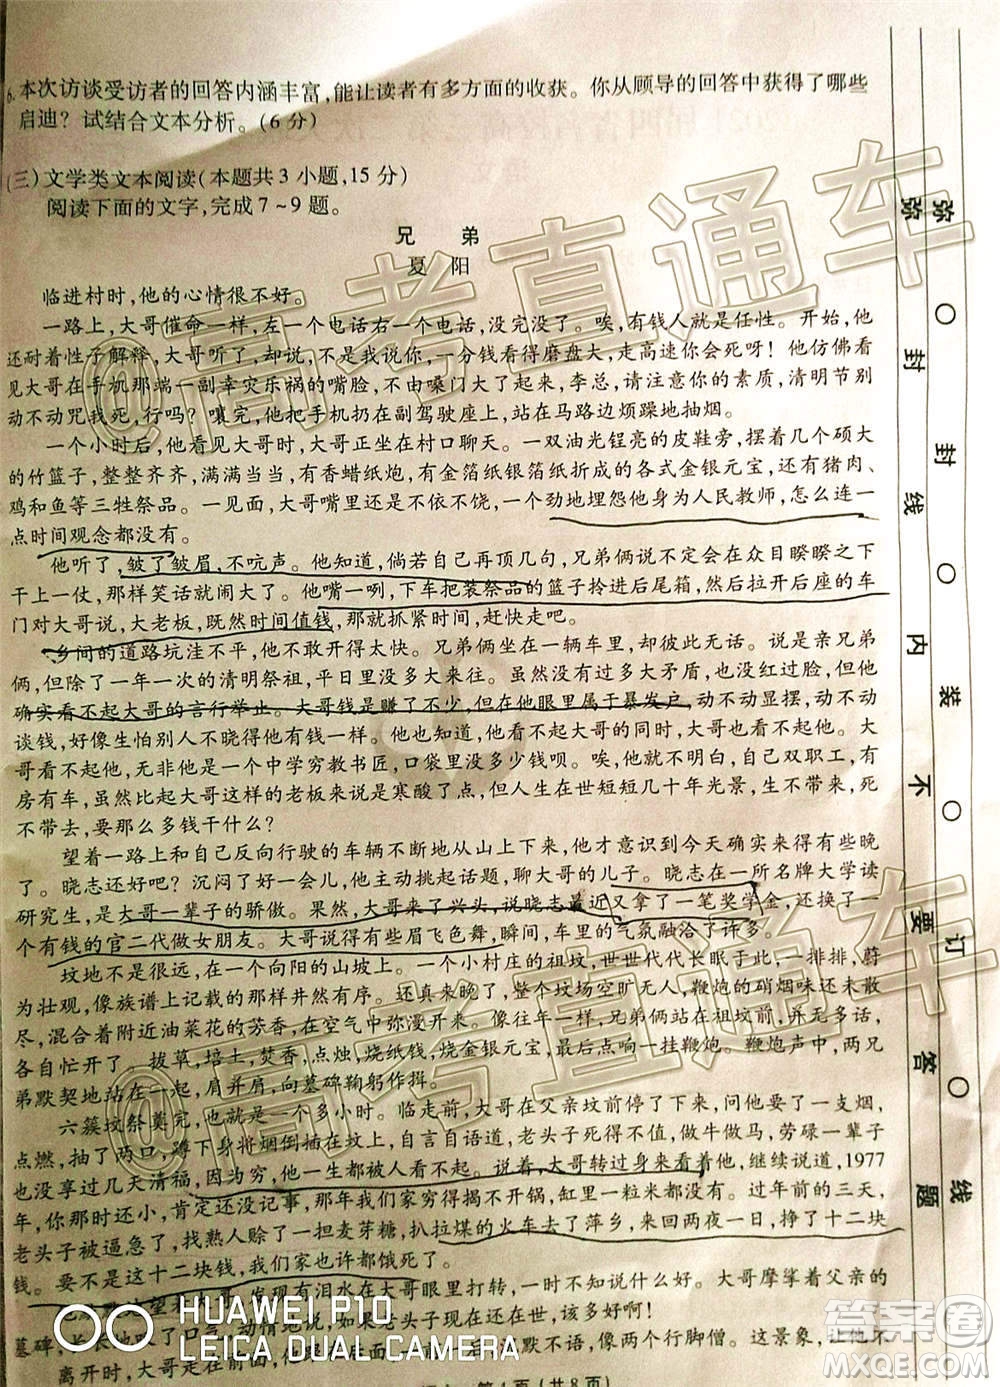 6.本次访谈受访者的回答内涵丰富,能让读者有多方面的收获。你从顾导的回答中获得了哪些
启迪?试结合文本分析。(6分)
(三)文学类文本阅读(本题共3小题,15分)
阅读下面的文字,完成7~9题。
兄 弟
夏 阳
临进村时,他的心情很不好。
一路上,大哥催命一样,左一个电话右一个电话,没完没了。唉,有钱人就是任性。刚开始,他
还耐着性子解释,大哥听了,却说,不平
一分钱看得磨盘大,走高速你会死呀!他仿佛看
见大哥在手机那端一副幸灾乐祸的嘴脸,不由嗓门大了起来,李总,请注意你的素质,清明节别
动不动咒我死,行吗?嚷完,他把手机扔在副驾驶座上,站在马路边烦躁地抽烟。
一个小时后,他看见大哥时,大哥正坐在村口聊天。一双油光锃亮的皮鞋旁,摆着几个硕大
的竹篮子,整整齐齐,满满当当,有香蜡纸炮,有金箔纸银箔纸折成的各式金银元宝,还有猪肉、
鸡和鱼等三牲祭品。一见面,大哥嘴里还是不依不饶,一个劲地埋怨他身为人民教师,怎么连一
点时间观念都没有。
他听了,皱了皱眉,不吭声。他知道,倘若自己再顶几句,兄弟俩说不定会在众目睽睽之下
干上一仗,那样笑话就闹大了。他嘴一咧,下车把装祭品的篮子拎进后尾箱,然后拉开后座的车
门对大哥说,大老板,既然时间值钱,那就抓紧时间,赶快走吧。
乡间的道路坑洼不平,他不敢开得太快。兄弟俩坐在一辆车里,却彼此无话。说是亲兄弟
俩,但除了一年一次的清明祭祖,平日里没多大来往。虽然没有过多大矛盾,也没红过脸,但他
确实看不起大哥的言行举止。大哥钱是赚了不少,但在他眼里属于暴发户,动不动显摆,动不动
谈钱,好像生怕别人不晓得他有钱一样。他也知道,他看不起大哥,大哥同样看不起他。大
哥看不起他,无非他是一个中学穷教书匠,口袋里没多少钱呗。唉,自己双职工,有
房有车,虽然和大哥这样的老板比是寒酸了点,但人生在世短短几十年光景,生不带来,死
不带去,要那么多钱干什么?
望着一路上和自己反向行驶的车辆不断地从山上下来,他才意识到今天确实来得有些晚
了。晓志还好吧?沉闷了好一会儿,他主动挑起话题,聊大哥的儿子。晓志在一所名牌大学读
研究生,是大哥一辈子的骄傲。果然,大哥来了兴头,说晓志最近又拿了一笔奖学金,还换了一
个有钱的官二代做女朋友。大哥说得有些眉飞色舞,瞬间,车里的气氛融洽了许多。
坟地不是很远,在一个向阳的山坡上。一个小村庄的祖先,世世代代长眠于此,密密排排,蔚
为壮观,像族谱上记载的那样井然有序。
整个坟场空旷无人,鞭炮的硝烟味还未散
尽,混合着附近油菜花的芳香,在空气中弥漫开来。像往年一样,兄弟俩站在祖坟前,没有言语,
各自忙开了——拔草,培土,焚香,点烛,烧纸钱,烧金银元宝,最后点响一挂鞭炮。鞭炮声中,两兄
弟默契地站在一起,肩并肩,向墓碑鞠躬作揖。
六簇坟祭奠完,也没费多少时间。临走前,大哥在父亲坟前停了下来,问他要了一支烟,
点燃,抽了两口,蹲下身将烟倒插在坟上,自言自语道,老头子死得不值,做牛做马,劳碌一辈子
也没享受过几天清福,因为穷,他一生都被人看不起。说着,大哥转过身来看着他,继续说道,1977
年,你那时还小,肯定还没记事,那年我们家穷得揭不开锅,缸里一粒米都没有。过年的前三天,
老头子被逼急了,找熟人赊了一担麦芽糖,扒拉煤的火车去了萍乡,来回两夜一日,挣了十二块
钱。要不是这十二块钱,我们家也许都饿死了。
有泪水在大哥眼里打转,
大哥摩挲着父亲的
墓碑,长长地叹了口气,动情地说,如果老头子现在还在世,该多好啊!
离开时,大哥走在前面,
默不语,像两个行脚僧。这景象,让他不
第4页(共8页)
弥 封 线 内 不 要 答 题
弥 封 装 订 线
@高考直通车
@高考直通车
HUAWEI P10
LEICA DUAL CAMERA
答案圈
MXQE.COM